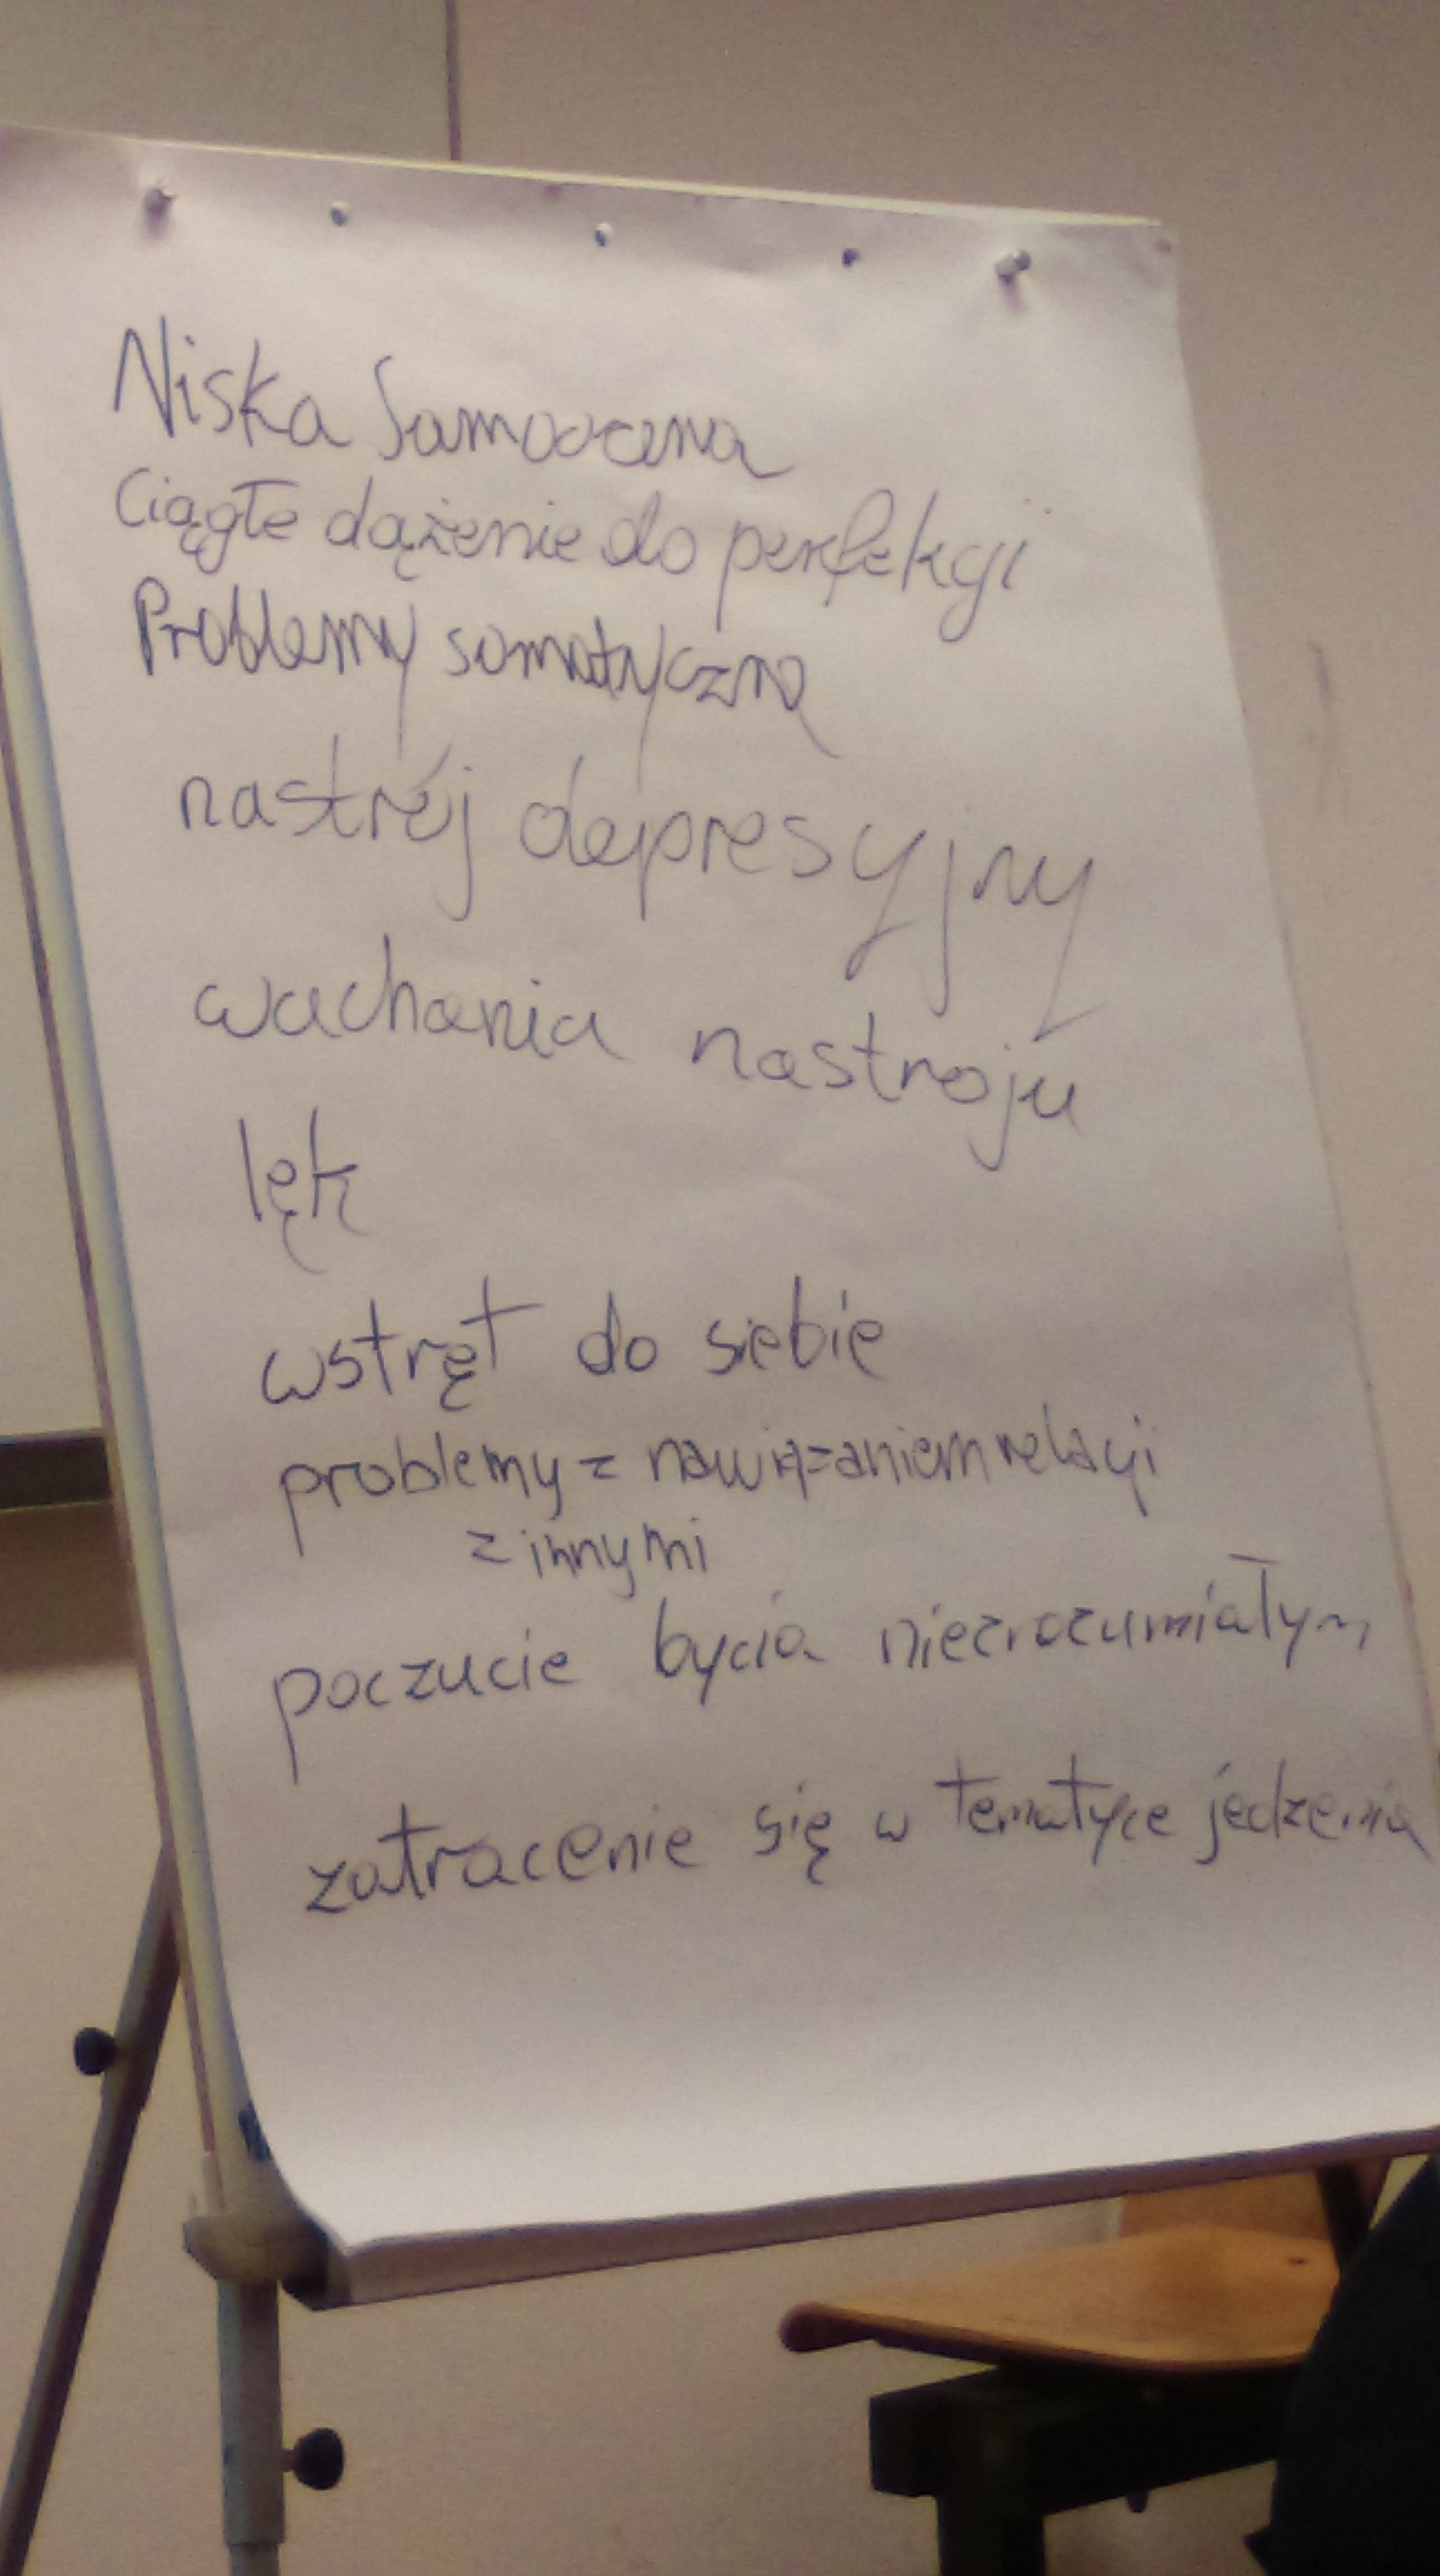 Niska Samoocena
Ciągłe dążenie do perfekcji
Problemy somatyczne
nastrój depresyjny
wachania nastroju
lęk
wstręt do siebie
problemy z nawiązaniem relacji
z innymi
poczucie bycia niezrozumiałym
zatracenie się w tematyce jedzenia